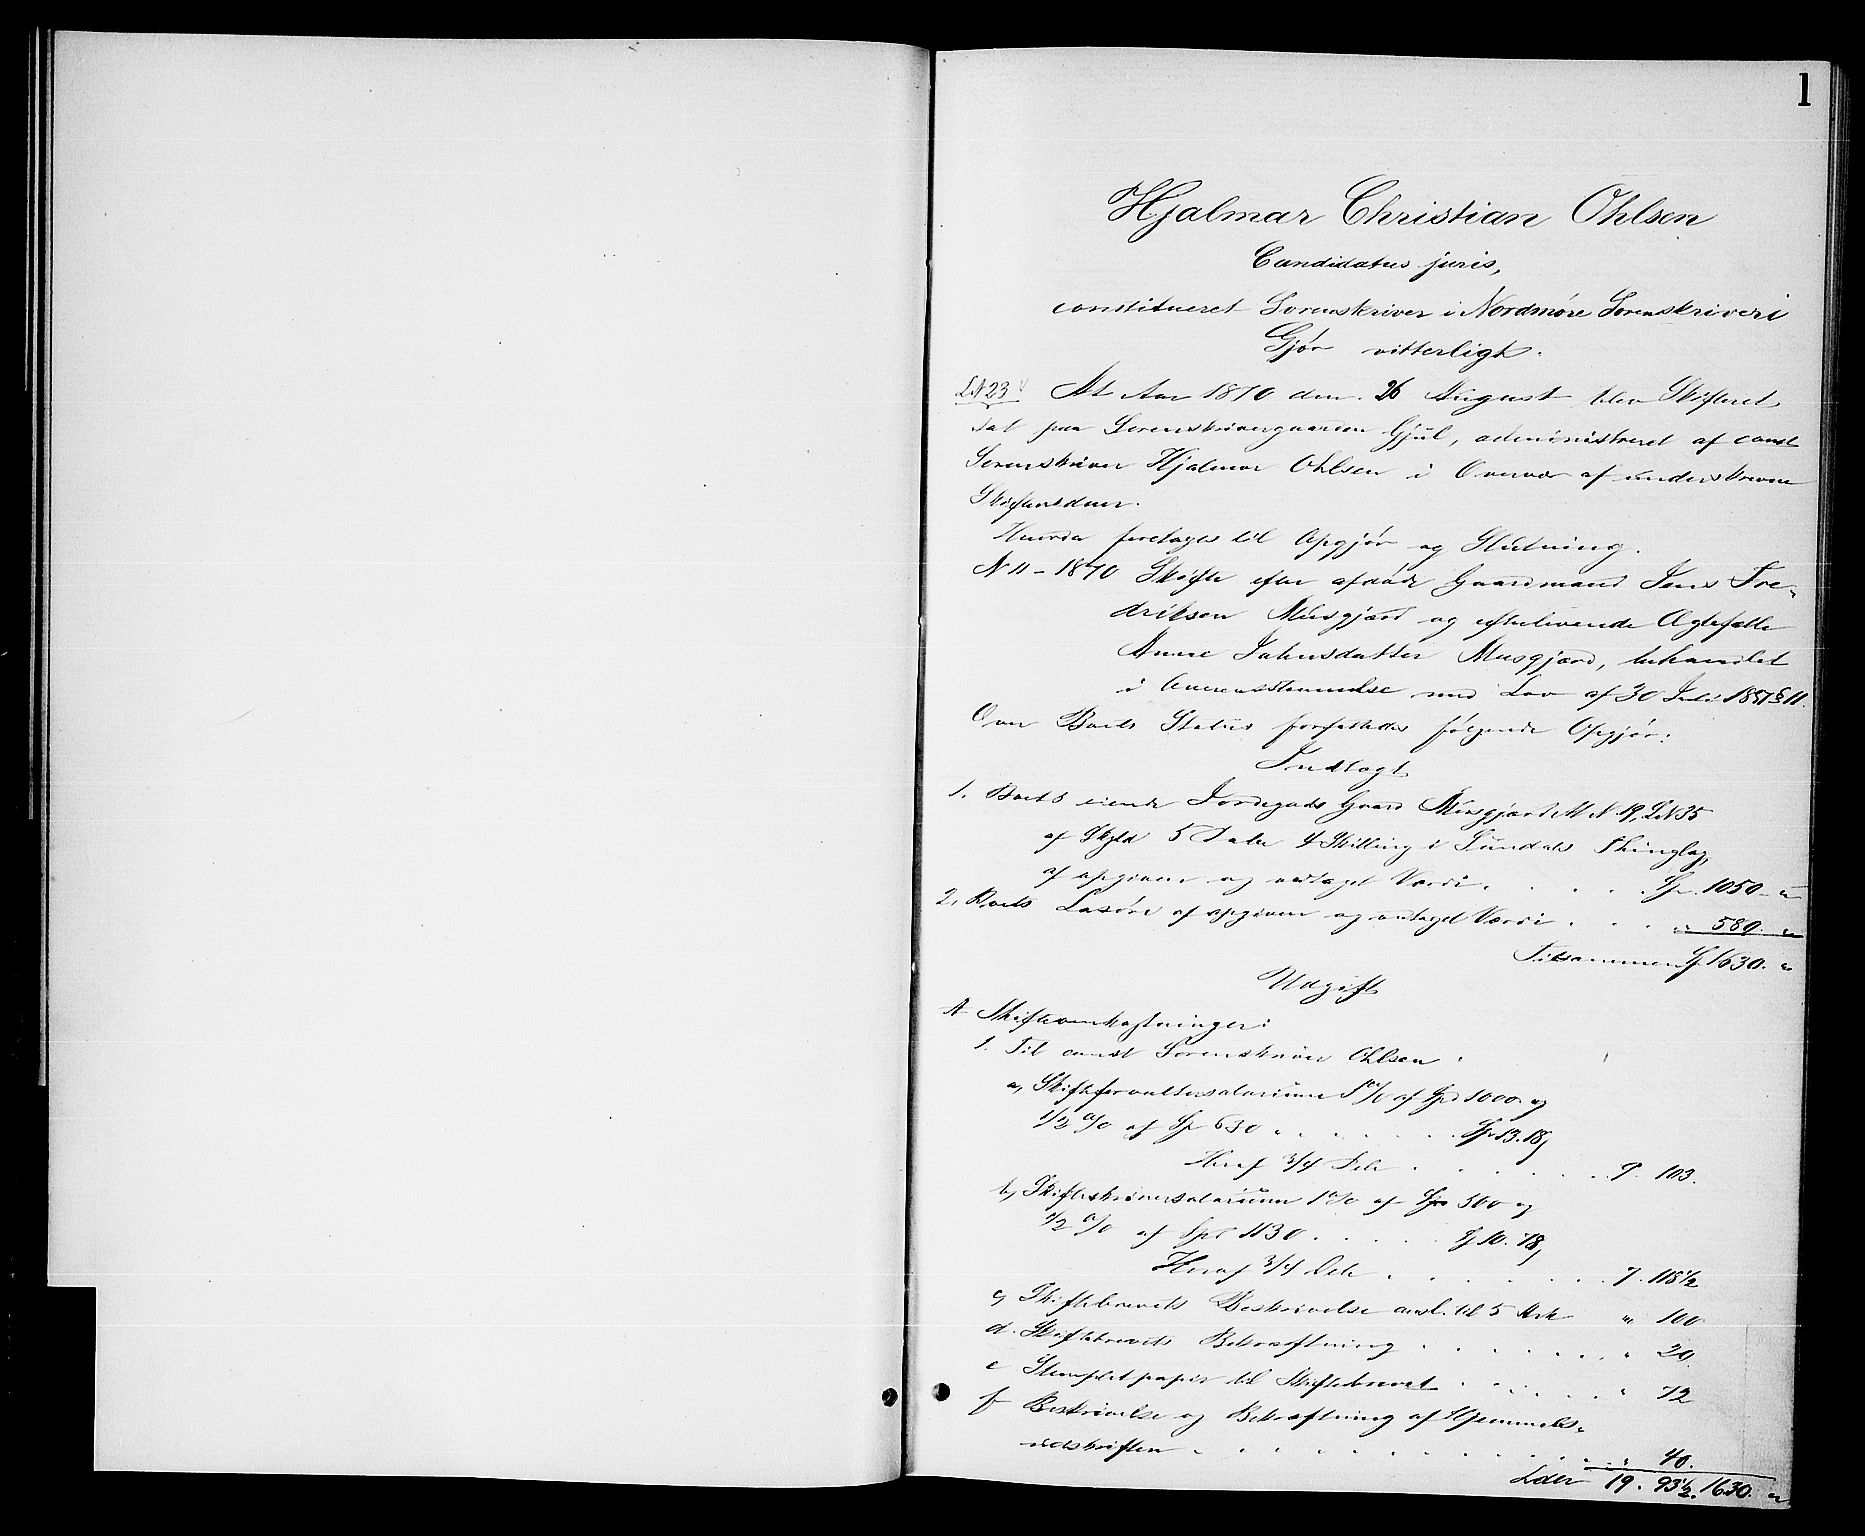 1
Hjalmar Christian Ohlsen
Candidatus juris,
constitueret Sorenskriver i Nordmøre Sorenskriveri
Gjør vitterligt:
At Aar 1870 den 26 August blev Skifteret
sat paa Sorenskrivergaarden Gjül, administreret af const
Sorenskriver Hjalmar Ohlsen i Overvær af underskrevne
Skifteretsduer.
Hvorda foretoges til Opgjør og Slutning.
N 11 - 1870 Skifte efter afdøde Gaardmand Jens Fre-
driksen Musgjærd og efterlevende Ægtefælle
Anne Jahnsdatter Musgjærd, behandlet
i Overensstemmelse med Lov af 30 Juli 1851 § 11.
Over Boets Status forfattedes følgende Opgjør:
Indtægt
1. Boets eiende Jordegods Gaard Musgjærd M N 19, L N 35
af Skyld 5 Daler 4 Skilling i Sundals Thinglag,
af opgiven og vedtaget Værdi . . . . Sp. 1050 - "
2, Boets Løsøre af opgiven og vedtaget Værdi . . . " 580. "
Tilsammen Sp 1630. "
Udgift
A Skifteomkostninger:
1. Til const Sorenskriver Ohlsen:
a, Skifteforvaltersalarium 1 % af Spd 1000 og
1/2 % af Sp 630 . . . . . Sp 13. 18,
Heraf 3/4 Dele . . . . . 9. 103.
b, Skifteskriversalarium 1 % af Spd 500 og
1/2 % af Spd 1130 . . . . . Sp 10. 78,
Heraf 3/4 Dele . . . . . 7. 118 1/2
c, Skiftebrevets Beskrivelse ansl. til 5 Ark " 100
d. Skiftebrevets Bekræftning . . . . . " 20.
e Stemplet papir til Skiftebrevet . . . . . " 72
f Beskrivelse og Bekræftning af Hjemmels-
udskriften . . . . . " 40.
Lder 19. 93 1/2. 1630. "